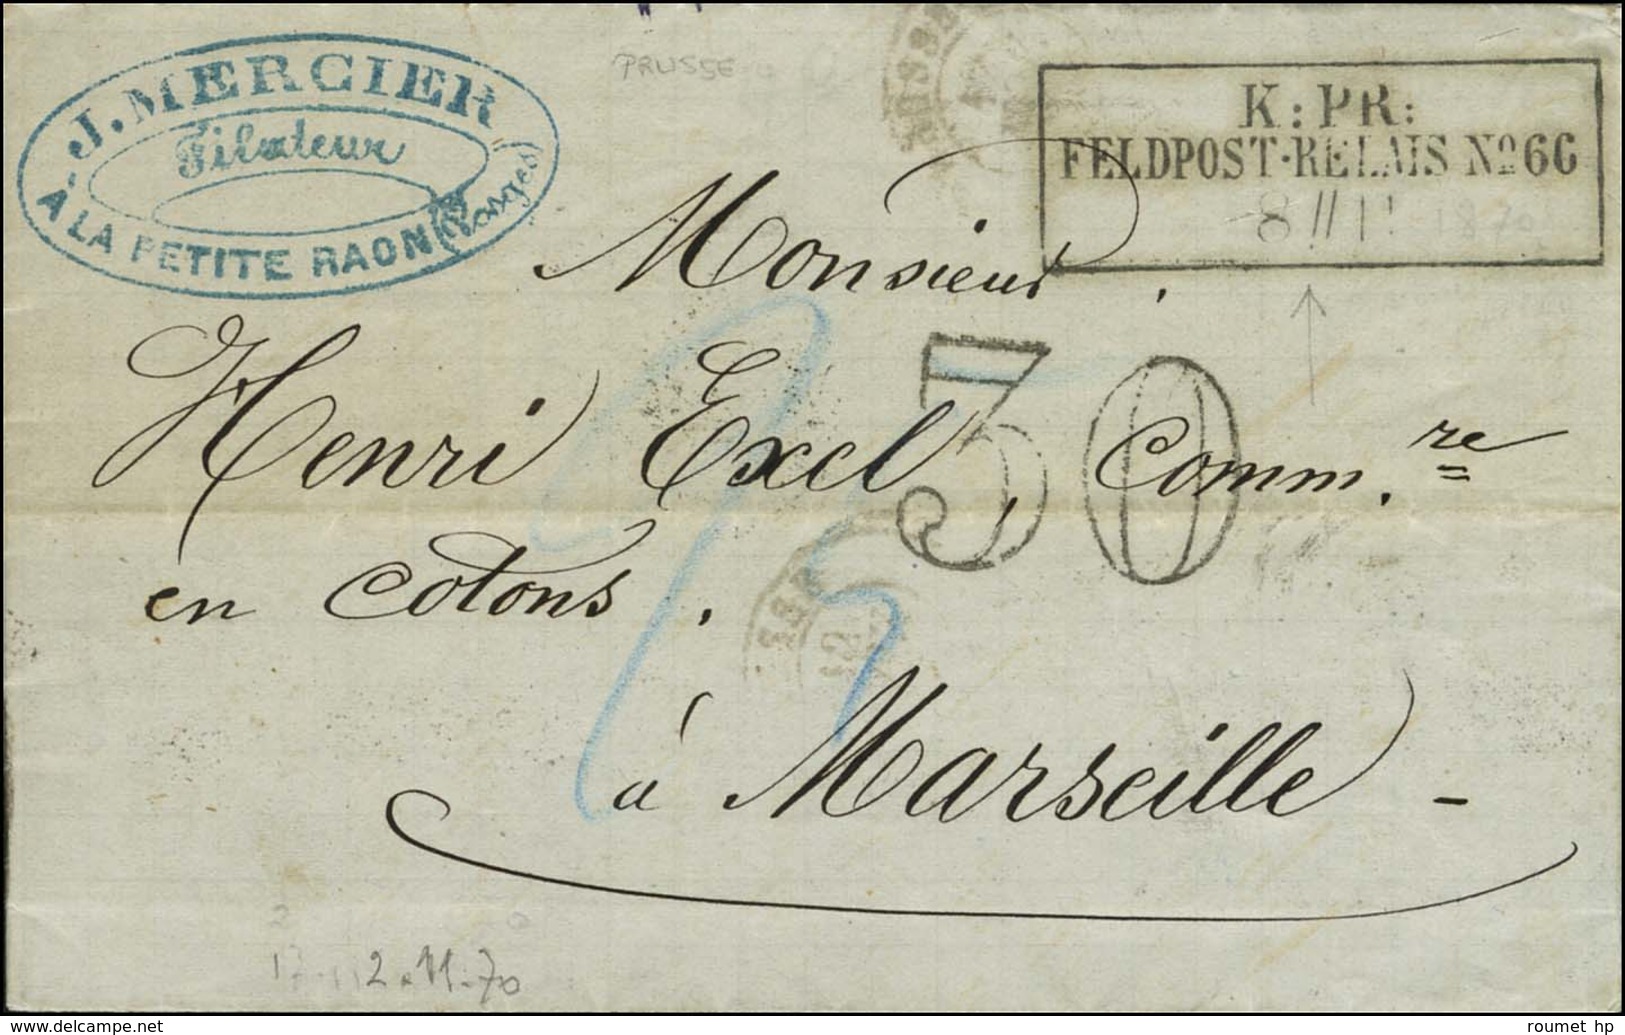 PRUSSE
J. MERCIER
Filateur
A LA PETITE RAON (Vosges)
K: PR:
FELDPOST-RELAIS No 66
8 11 1870
Monsieur
Henri Excl, Comm.re
en cotons.
30
25
à Marseille -
2.11.70
roumet hp